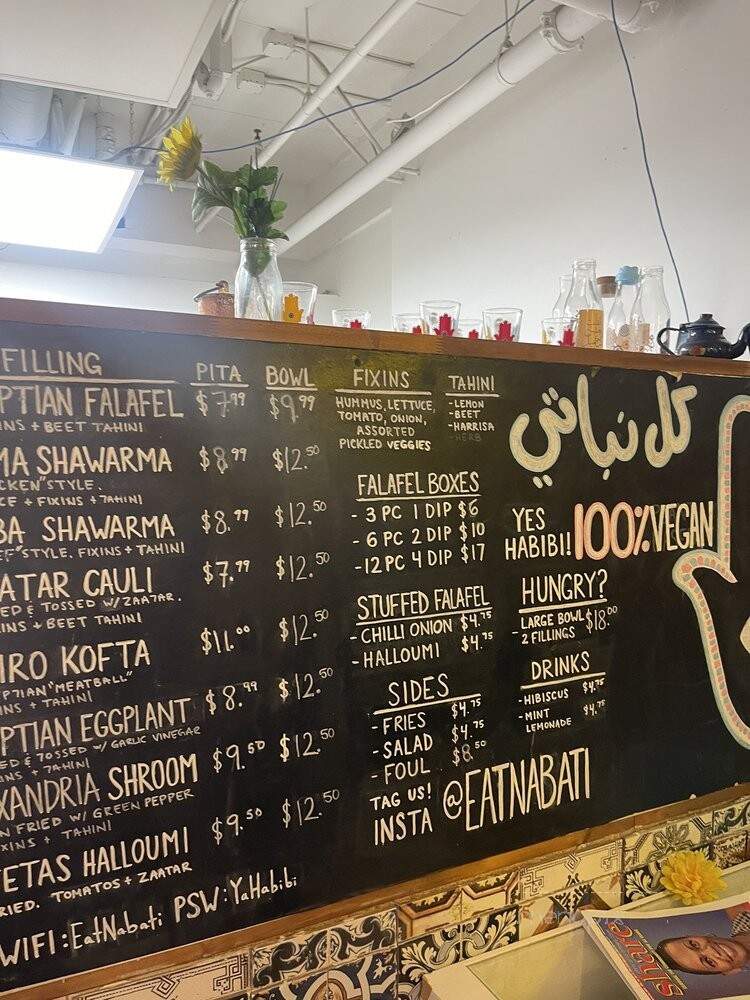 FILLING PITA BOWL
PTIAN FALAFEL $7.99 $9.99
INS + BEET TAHINI
MA SHAWARMA $8.99 $12.50
CKEN" STYLE.
CE + FIXINS + TAHINI
BA SHAWARMA $8.99 $12.50
EF" STYLE. FIXINS + TAHINI
ATAR CAULI $7.99 $12.50
ED & TOSSED W/ ZAATAR.
INS + BEET TAHINI
IRO KOFTA $11.00 $12.50
PTIAN "MEATBALL"
NS + TAHINI
PTIAN EGGPLANT $8.99 $12.50
ED & TOSSED W/ GARLIC VINEGAR
INS + TAHINI
XANDRIA SHROOM $9.50 $12.50
N FRIED W/ GREEN PEPPER
XINS + TAHINI
ETAS HALLOUMI $9.50 $12.50
RIED. TOMATOS + ZAATAR
WIFI: EatNabati PSW: YaHabibi
FIXINS
HUMMUS, LETTUCE,
TOMATO, ONION,
ASSORTED
PICKLED VEGGIES
TAHINI
- LEMON
- BEET
- HARRISA
- HERB
FALAFEL BOXES
- 3 PC 1 DIP $6
- 6 PC 2 DIP $10
- 12 PC 4 DIP $17
STUFFED FALAFEL
- CHILLI ONION $4.75
- HALLOUMI $4.75
SIDES
- FRIES $4.75
- SALAD $4.75
- FOUL $8.50
TAG US!
INSTA @EATNABATI
كل نباتي
YES
HABIBI! 100% VEGAN
HUNGRY?
LARGE BOWL $18.00
- 2 FILLINGS
DRINKS
- HIBISCUS $4.75
- MINT
LEMONADE $4.75
share